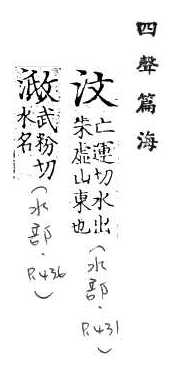 四聲篇海
汶 亡運切水出
朱虛山東也
(水部．P.431)
武粉切
水名
(水部．P.436)